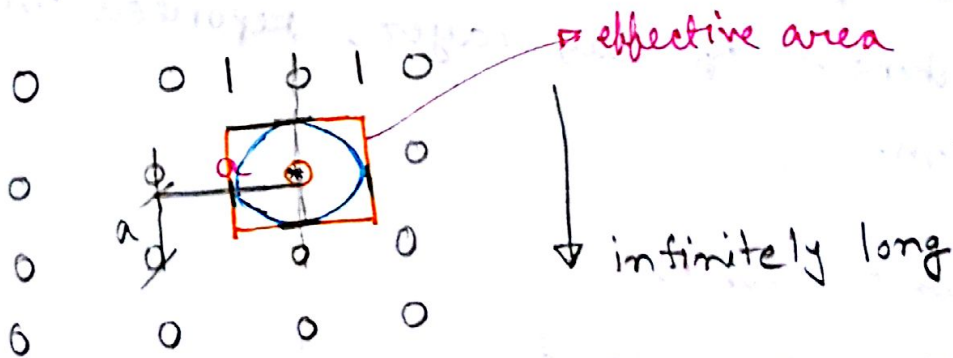 effective area
a
a
infinitely long